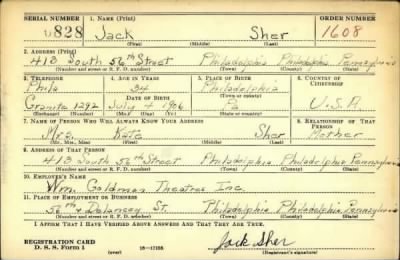 SERIAL NUMBER 1. NAME (Print) ORDER NUMBER
U828 Jack Sher 1608
(First) (Middle) (Last)
2. ADDRESS (Print)
413 South 56th Street Philadelphia Philadelphia Pennsylvania
(Number and street or R. F. D. number) (Town) (County) (State)
3. TELEPHONE 4. AGE IN YEARS 5. PLACE OF BIRTH 6. COUNTRY OF CITIZENSHIP
Phila 34 Philadelphia
(Town or county)
DATE OF BIRTH
Granite 1292 July 4 1906 Pa U.S.A.
(Exchange) (Number) (Mo.) (Day) (Yr.) (State or country)
7. NAME OF PERSON WHO WILL ALWAYS KNOW YOUR ADDRESS 8. RELATIONSHIP OF THAT PERSON
Mrs. Kate Sher Mother
(Mr., Mrs., Miss) (First) (Middle) (Last)
9. ADDRESS OF THAT PERSON
413 South 56th Street Philadelphia Philadelphia Pennsylvania
(Number and street or R. F. D. number) (Town) (County) (State)
10. EMPLOYER'S NAME
Wm. Goldman Theatres Inc.
11. PLACE OF EMPLOYMENT OR BUSINESS
56th & Delancey St. Philadelphia Philadelphia Pennsylvania
(Number and street or R. F. D. number) (Town) (County) (State)
I AFFIRM THAT I HAVE VERIFIED ABOVE ANSWERS AND THAT THEY ARE TRUE.
REGISTRATION CARD
D. S. S. Form 1 (over) 16-17105 Jack Sher
(Registrant's signature)